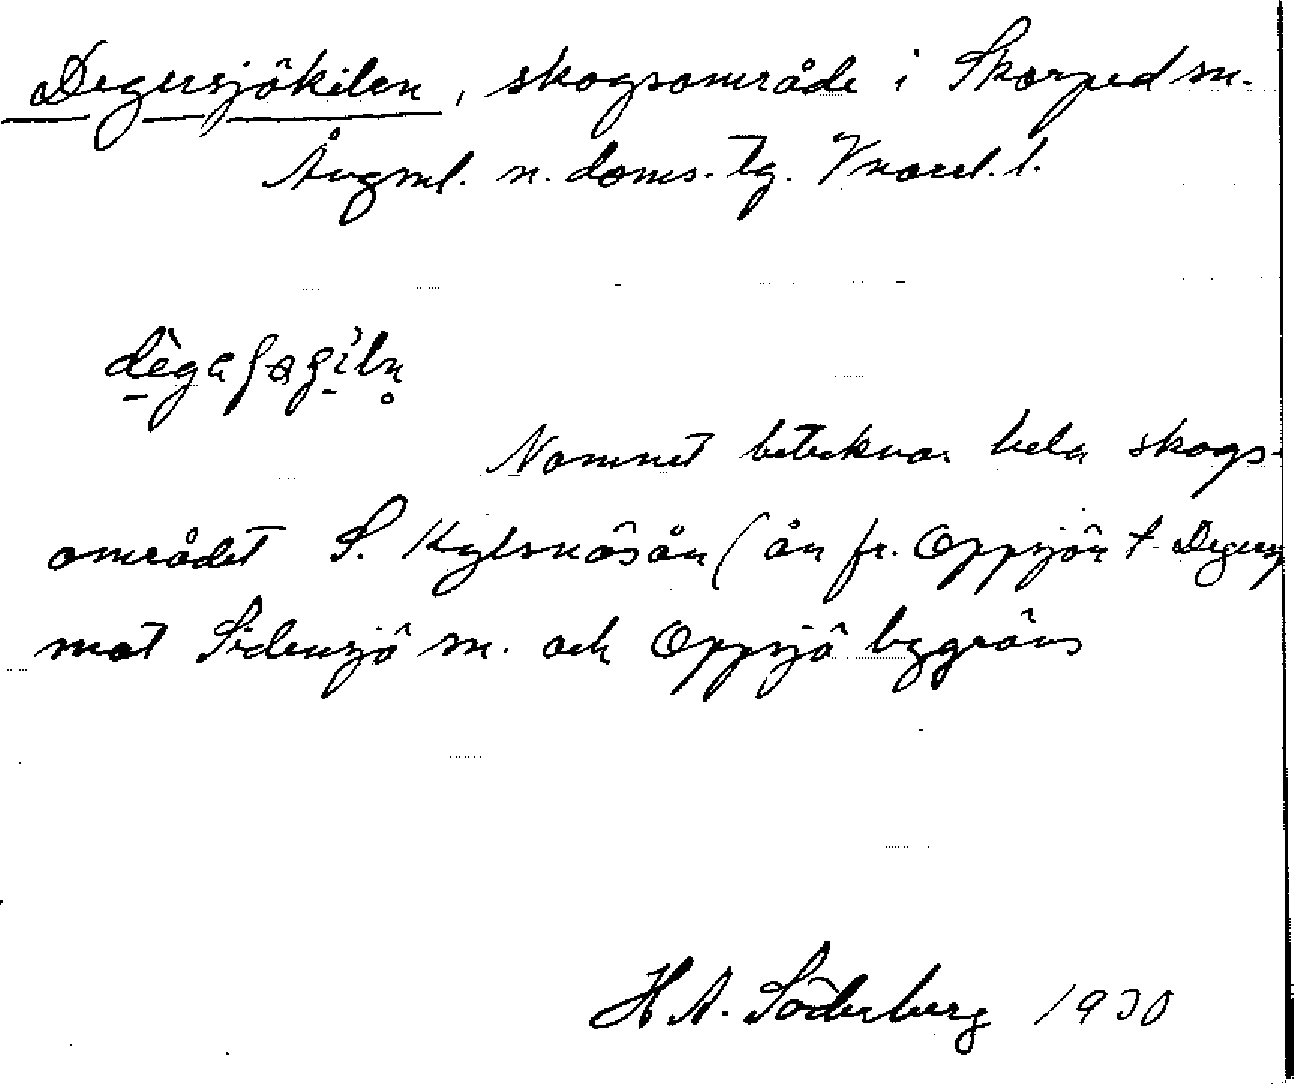 Degersjökilen, skogsområde i Skorped sn.
Ångml. n. doms. tg. Vnorrl. l.
Namnet betecknar hela skogs-
området S. Kylsnäsån (ån fr. Oppsjön t. Degersj
mot Sidensjö sn. och Oppsjö bygräns
H A. Söderberg 1930